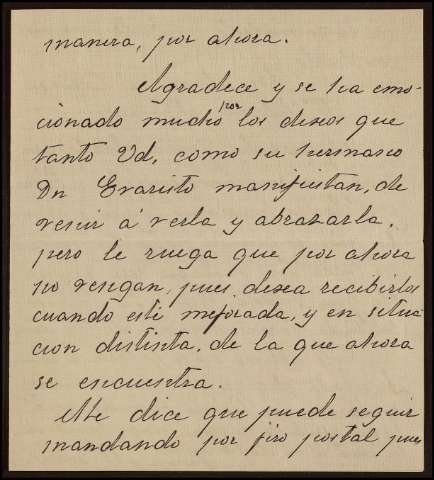 manera, por ahora.
Agradece y se ha emo-
cionado mucho por los deseos que
tanto Vd, como su hermano
Dn Evaristo manifiestan, de
venir á verla y abrazarla,
pero le ruega que por ahora
no vengan, pues desea recibirlos
cuando esté mejorada, y en situa-
cion distinta, de la que ahora
se encuentra.
Me dice que puede seguir
mandando por jiro postal pues